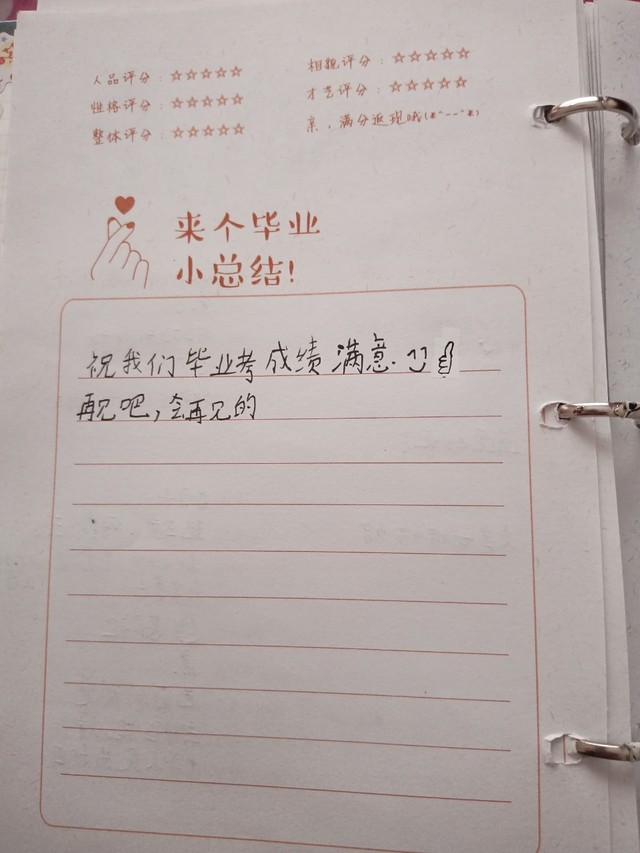 人品评分：☆☆☆☆☆
相貌评分：☆☆☆☆☆
性格评分：☆☆☆☆☆
才艺评分：☆☆☆☆☆
整体评分：☆☆☆☆☆
亲，满分返现哦(#^--^#)
来个毕业
小总结!
祝我们毕业考成绩满意.
再见吧，会再见的